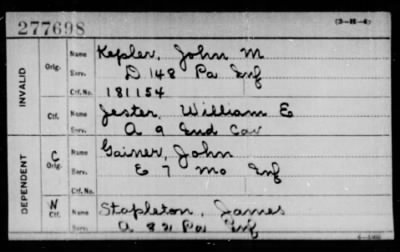 277698
(3-H-4)
INVALID
Orig.
Name
Kepler, John M
Serv.
D 148 Pa Inf
Ctf. No.
181154
Ctf.
Name
Jester, William E
Serv.
A 9 Ind Cav
DEPENDENT
C
Orig.
Name
Gainer, John
Serv.
E 7 Mo Inf
Ctf. No.
W
Ctf.
Name
Stapleton, James
Serv.
A 82 Pa Inf